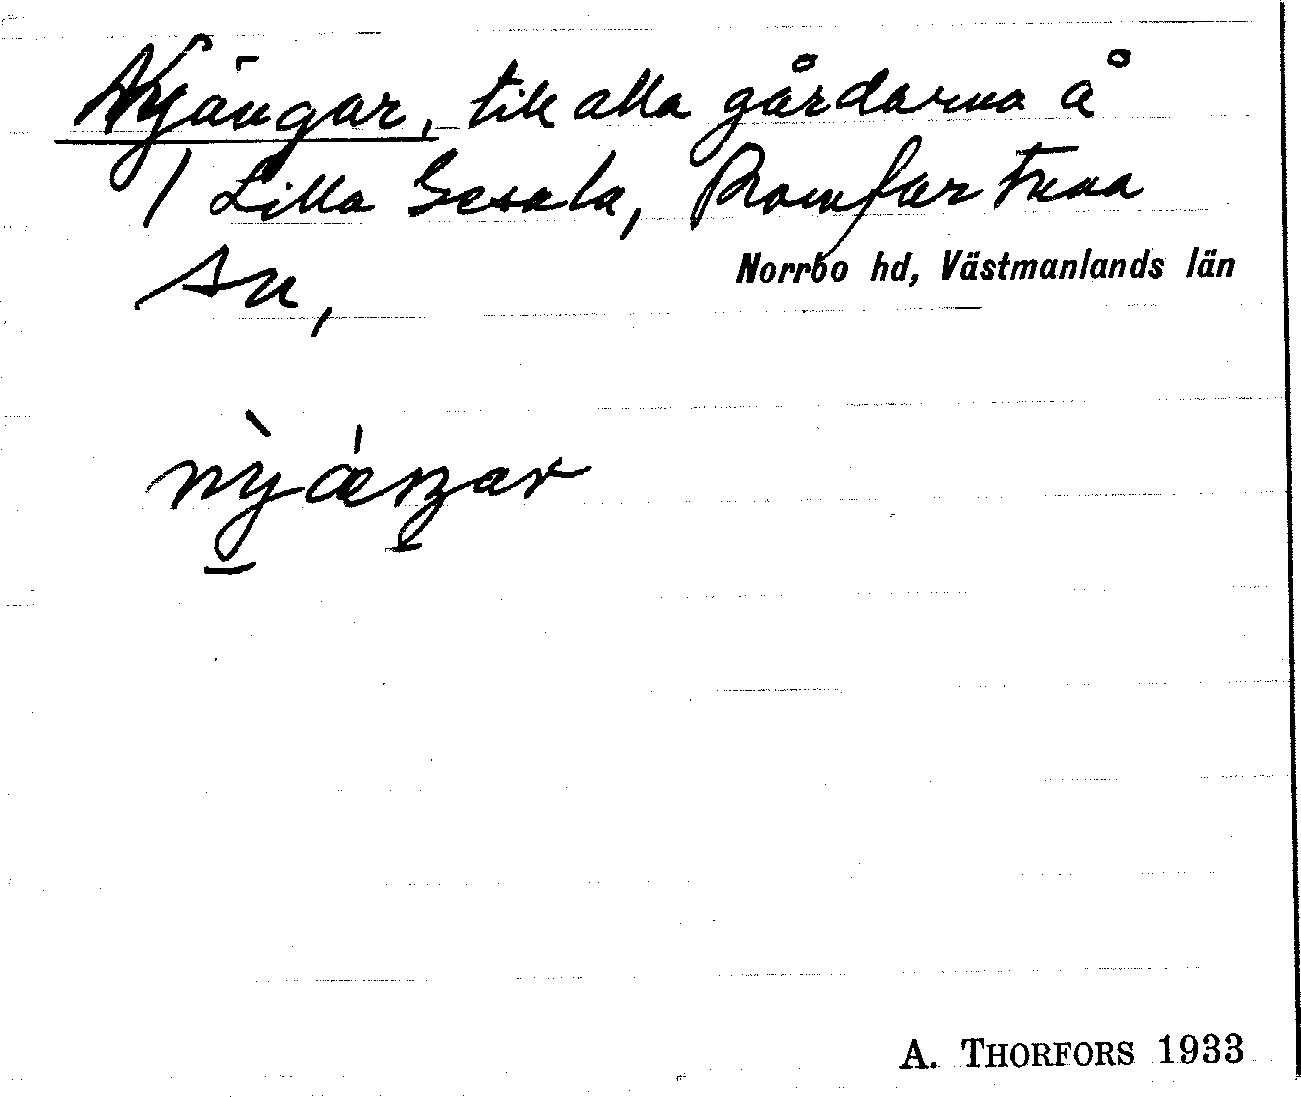 Nyängar, till alla gårdarna å
/ Lilla Gesala, Romfartuna
sn,
Norrbo hd, Västmanlands län
nỳǽŋar
A. THORFORS 1933